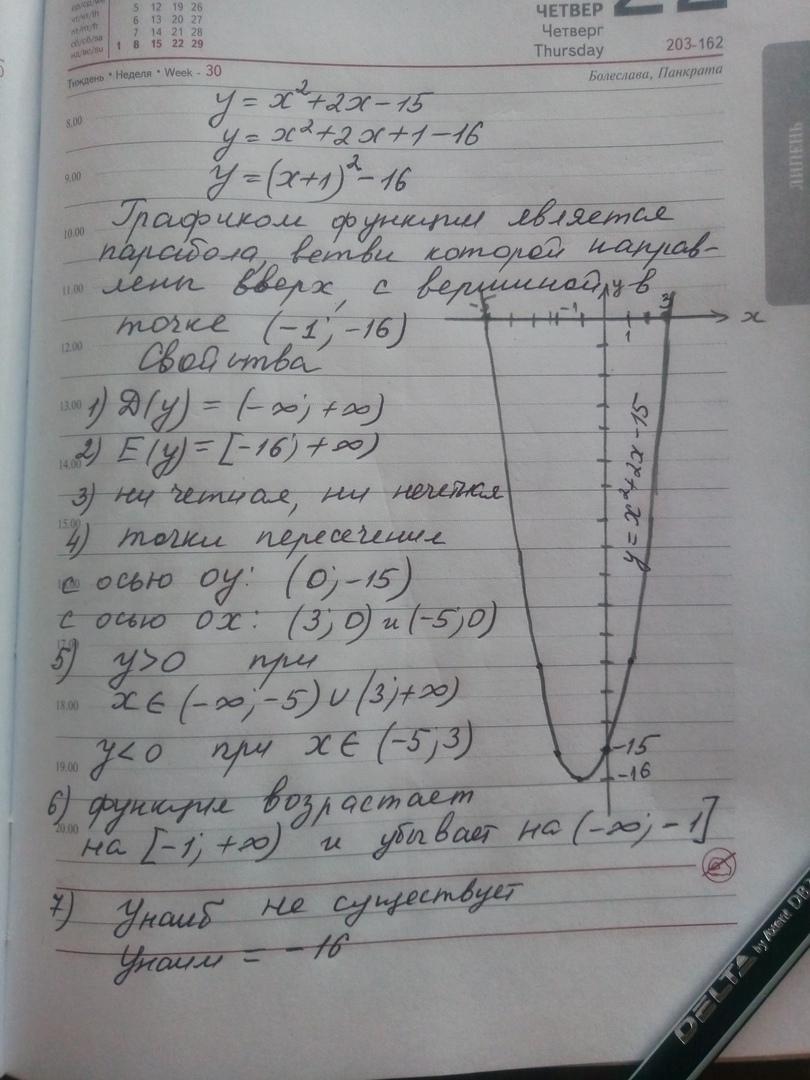 5 12 19 26
6 13 20 27
7 14 21 28
сб/сб/sa 1 8 15 22 29
ЧЕТВЕР
Четверг
Thursday
203-162
Тиждень • Неделя • Week - 30
Болеслава, Панкрата
ЛИПЕНЬ
8.00
y = x²+2x-15
y = x²+2x+1-16
9.00
y = (x+1)²-16
10.00
Графиком функции является
парабола, ветви которой направ-
11.00
лены вверх, с вершиной в
точке (-1; -16)
12.00
Свойства
13.00
1) D(y) = (-∞; +∞)
2) E(y) = [-16; +∞)
14.00
3) ни четная, ни нечетная
15.00
4) точки пересечения
с осью OY: (0; -15)
с осью OX: (3; 0) и (-5; 0)
17.00
5) y>0 при
x∈(-∞; -5)∪(3; +∞)
18.00
y<0 при x∈(-5; 3)
19.00
6) функция возрастает
20.00
на [-1; +∞) и убывает на (-∞; -1]
7) Yнаиб не существует
Yнаим = -16
y
-1
1
3
x
y = x²+2x-15
-15
-16
DELTA by Axent